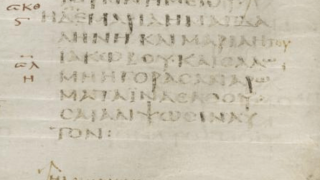 ΗΔΕΜΑΡΙΑΗΜΑΓΔΑ
ΛΗΝΗΚΑΙΜΑΡΙΑΗΤΟΥ
ΙΑΚΩΒΟΥΚΑΙϹΑΛΩ
ΜΗΗΓΟΡΑϹΑΝΑΡΩ
ΜΑΤΑΙΝΑΕΛΘΟΥ
ϹΑΙΑΛΙΨΩϹΙΝΑΥ
ΤΟΝ: